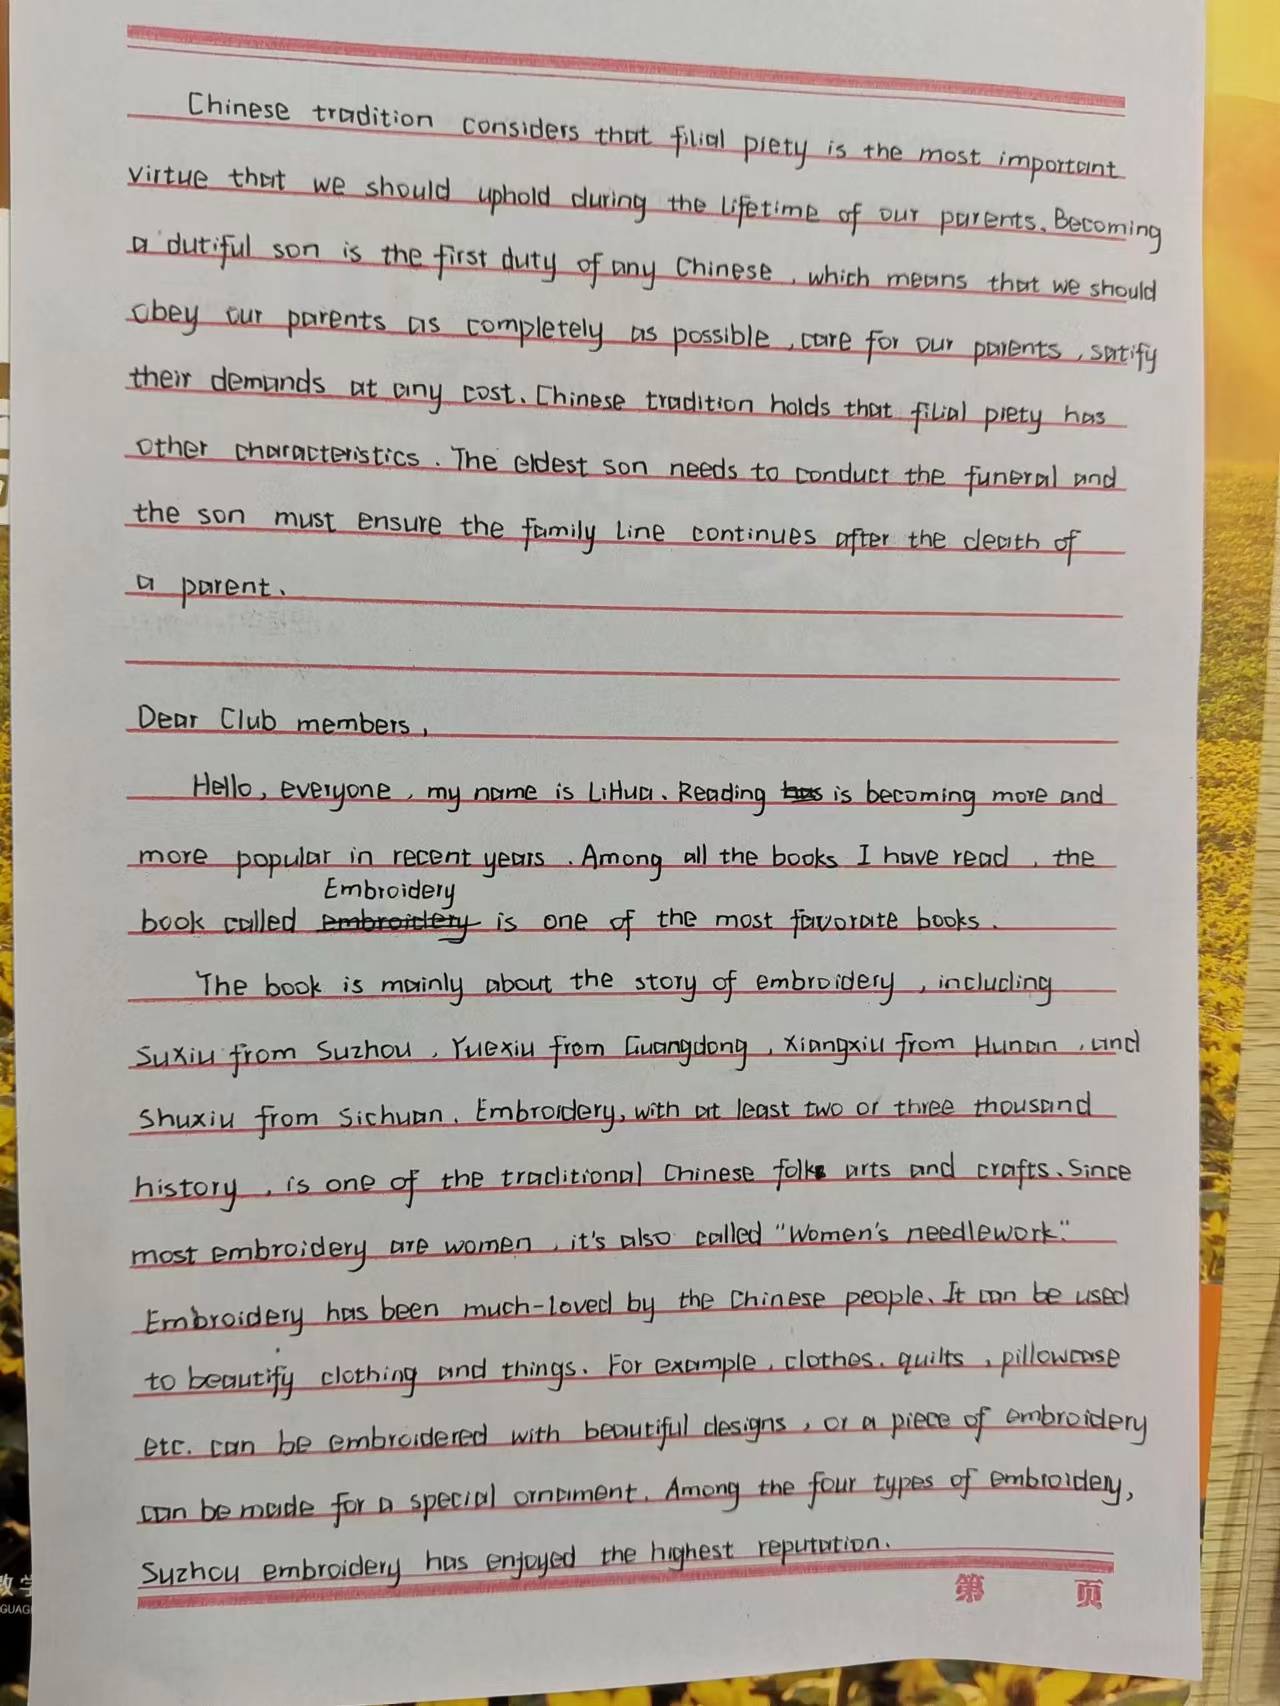 Chinese tradition considers that filial piety is the most important
virtue that we should uphold during the lifetime of our parents. Becoming
a dutiful son is the first duty of any Chinese, which means that we should
obey our parents as completely as possible, care for our parents, satify
their demands at any cost. Chinese tradition holds that filial piety has
other characteristics. The eldest son needs to conduct the funeral and
the son must ensure the family line continues after the death of
a parent.
Dear Club members,
Hello, everyone, my name is LiHua. Reading has is becoming more and
more popular in recent years. Among all the books I have read, the
Embroidery
book called embroidery is one of the most favorate books.
The book is mainly about the story of embroidery, including
Suxiu from Suzhou, Yuexiu from Guangdong, Xiangxiu from Hunan, and
Shuxiu from Sichuan. Embroidery, with at least two or three thousand
history, is one of the traditional Chinese folk arts and crafts. Since
most embroidery are women, it's also called "Women's needlework."
Embroidery has been much-loved by the Chinese people. It can be used
to beautify clothing and things. For example, clothes, quilts, pillowcase
etc. can be embroidered with beautiful designs, or a piece of embroidery
can be made for a special ornament. Among the four types of embroidery,
Suzhou embroidery has enjoyed the highest reputation.
第 页